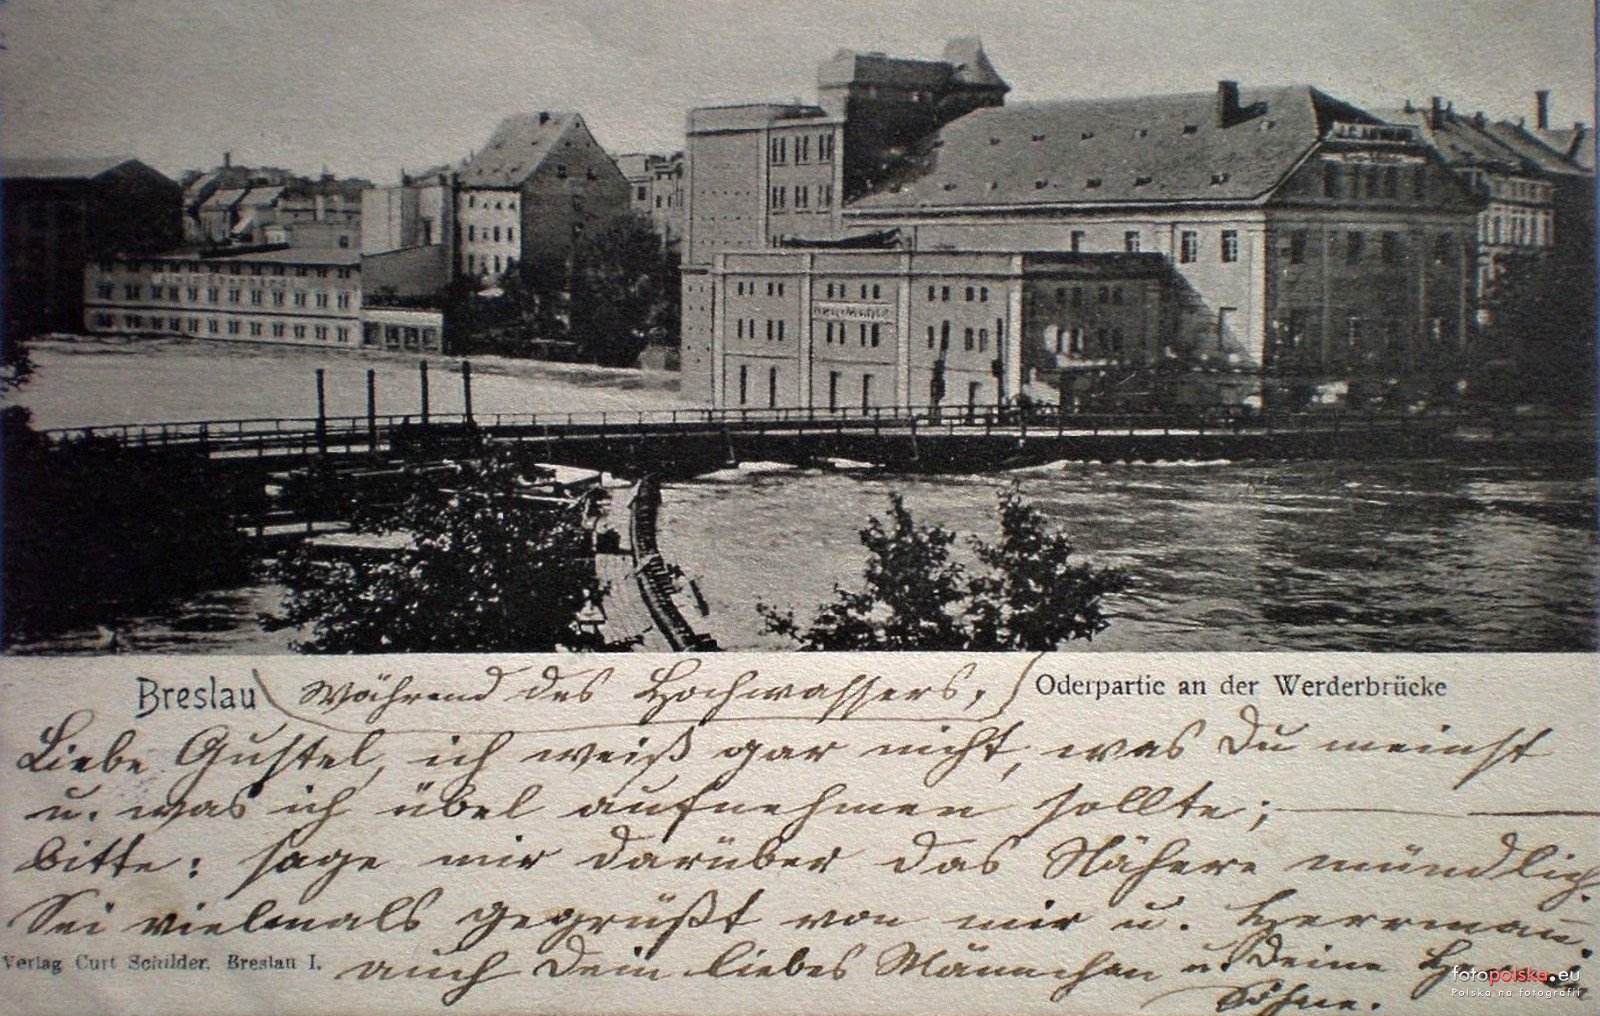 Breslau während des Hochwassers, Oderpartie an der Werderbrücke
Liebe Gustel, ich weiß gar nicht, was Du meinst
u. was ich übel aufnehmen sollte;
bitte: sage mir darüber das Nähere mündlich
Sei vielmals gegrüßt von mir u. Herrmann.
Verlag Curt Schilder, Breslau I. auch Dein liebes Männchen u. Deine
Söhne.
fotopolska.eu
Polska na fotografii